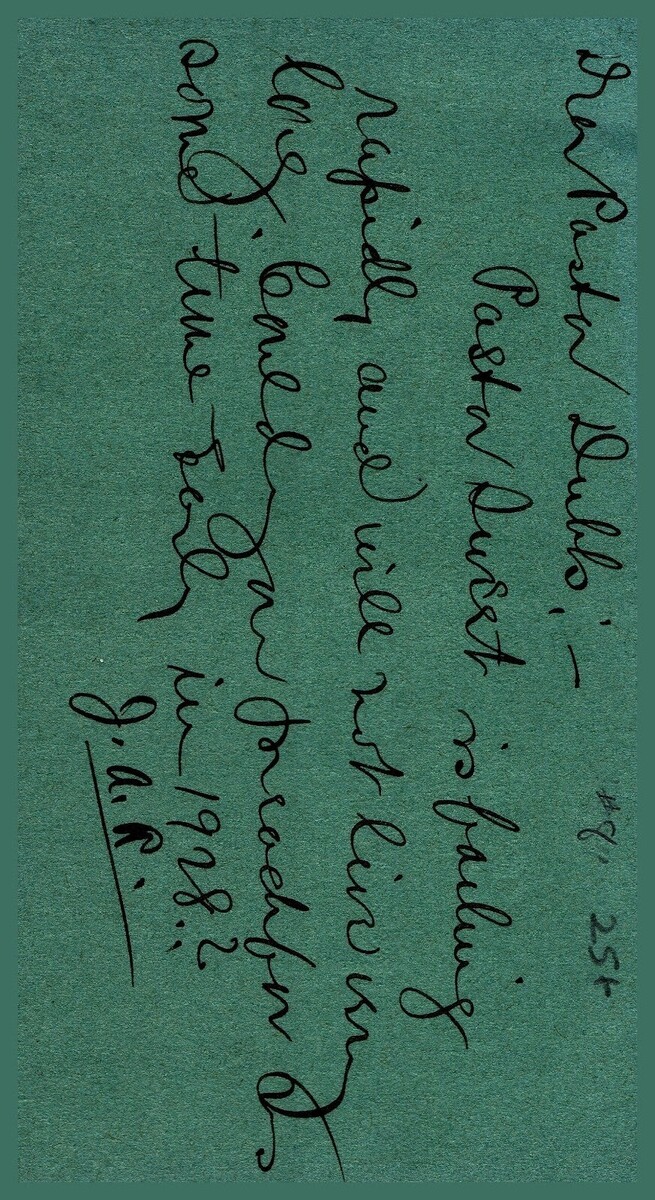 Dear Pastor Dubbs:—
#8. 25t
Pastor Durst is failing
rapidly and will not live very
long. Could you preach for us
some time early in 1928?
J. A. R.